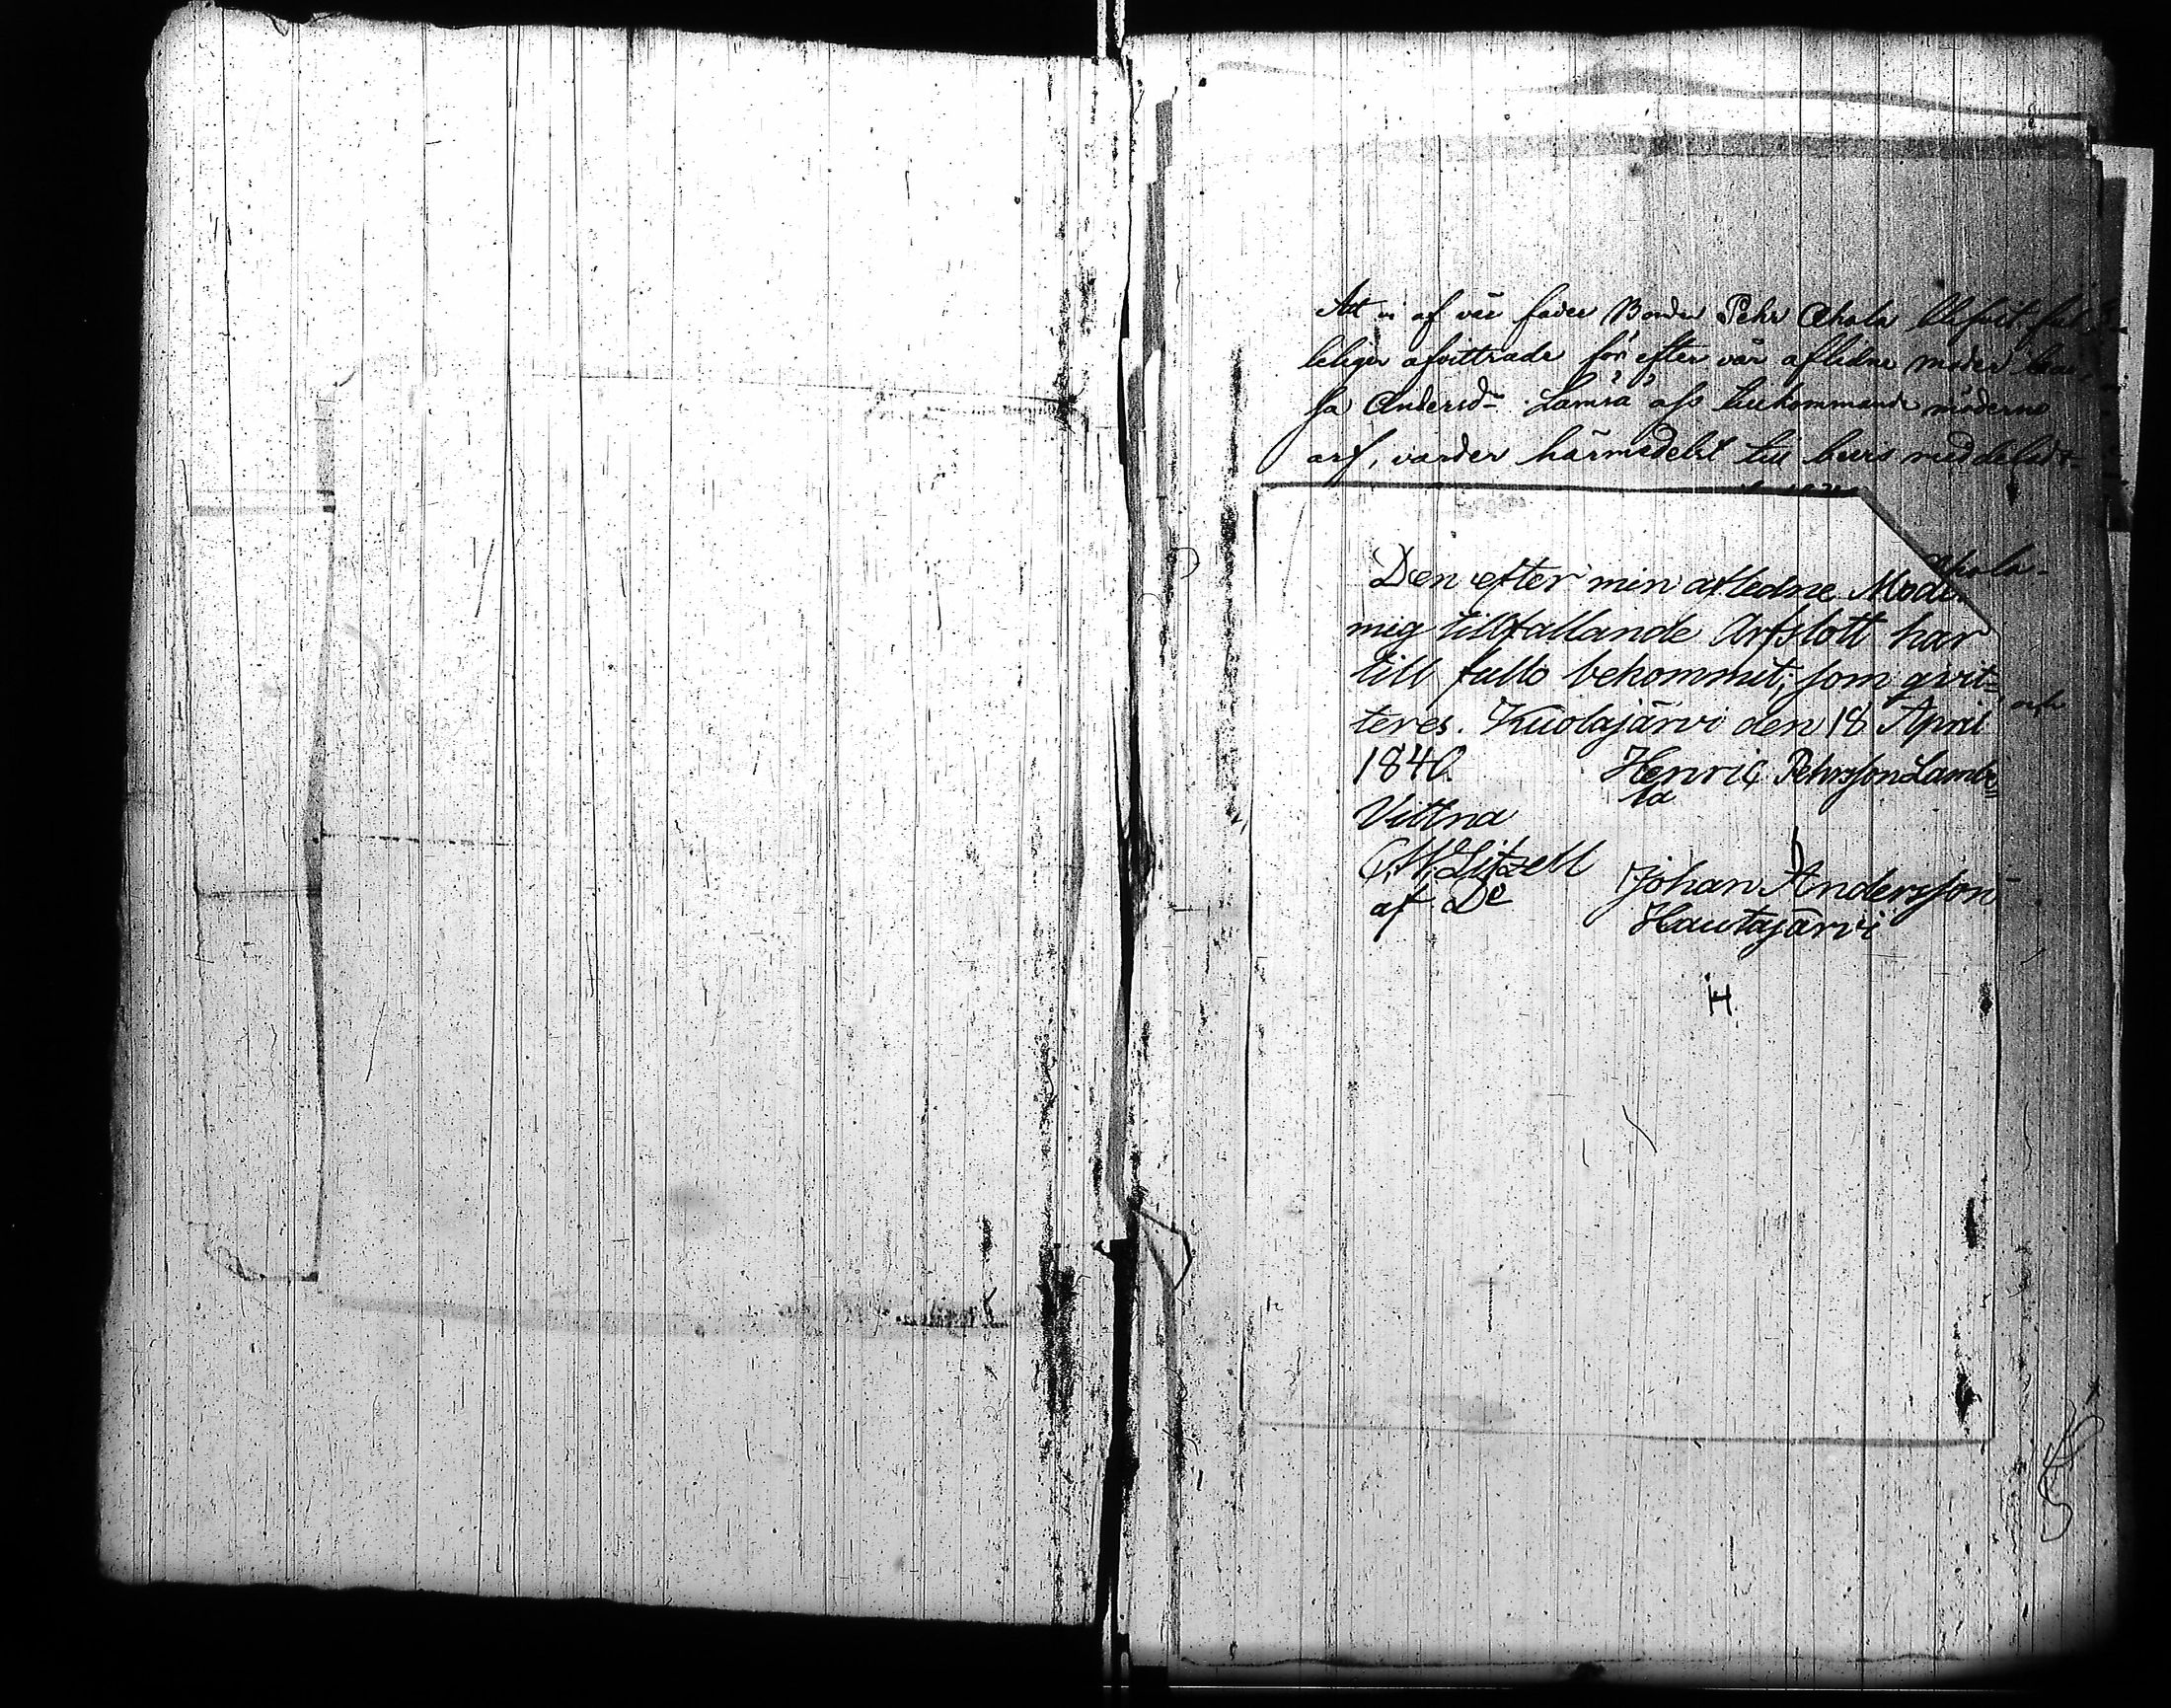 Att vi af vår fader Bonden Pehr Ahola blifvit full
leligen afvittrade för efter vår aflidne moder
sa Andersd= Lämsä oss tillkommande möderne
arf, varder härmedelst till bevis meddeladt.
Ahola.
Den efter min afledne Moder
mig tillfallande Arfslott har
till fullo bekommit; som qvit=
teres. Kuolajärvi den 18 April
1840. Henric PehrssonLambe=
la
Vittna
C.W. Litzell
af De
Johan Andersson
Hautajärvi
H